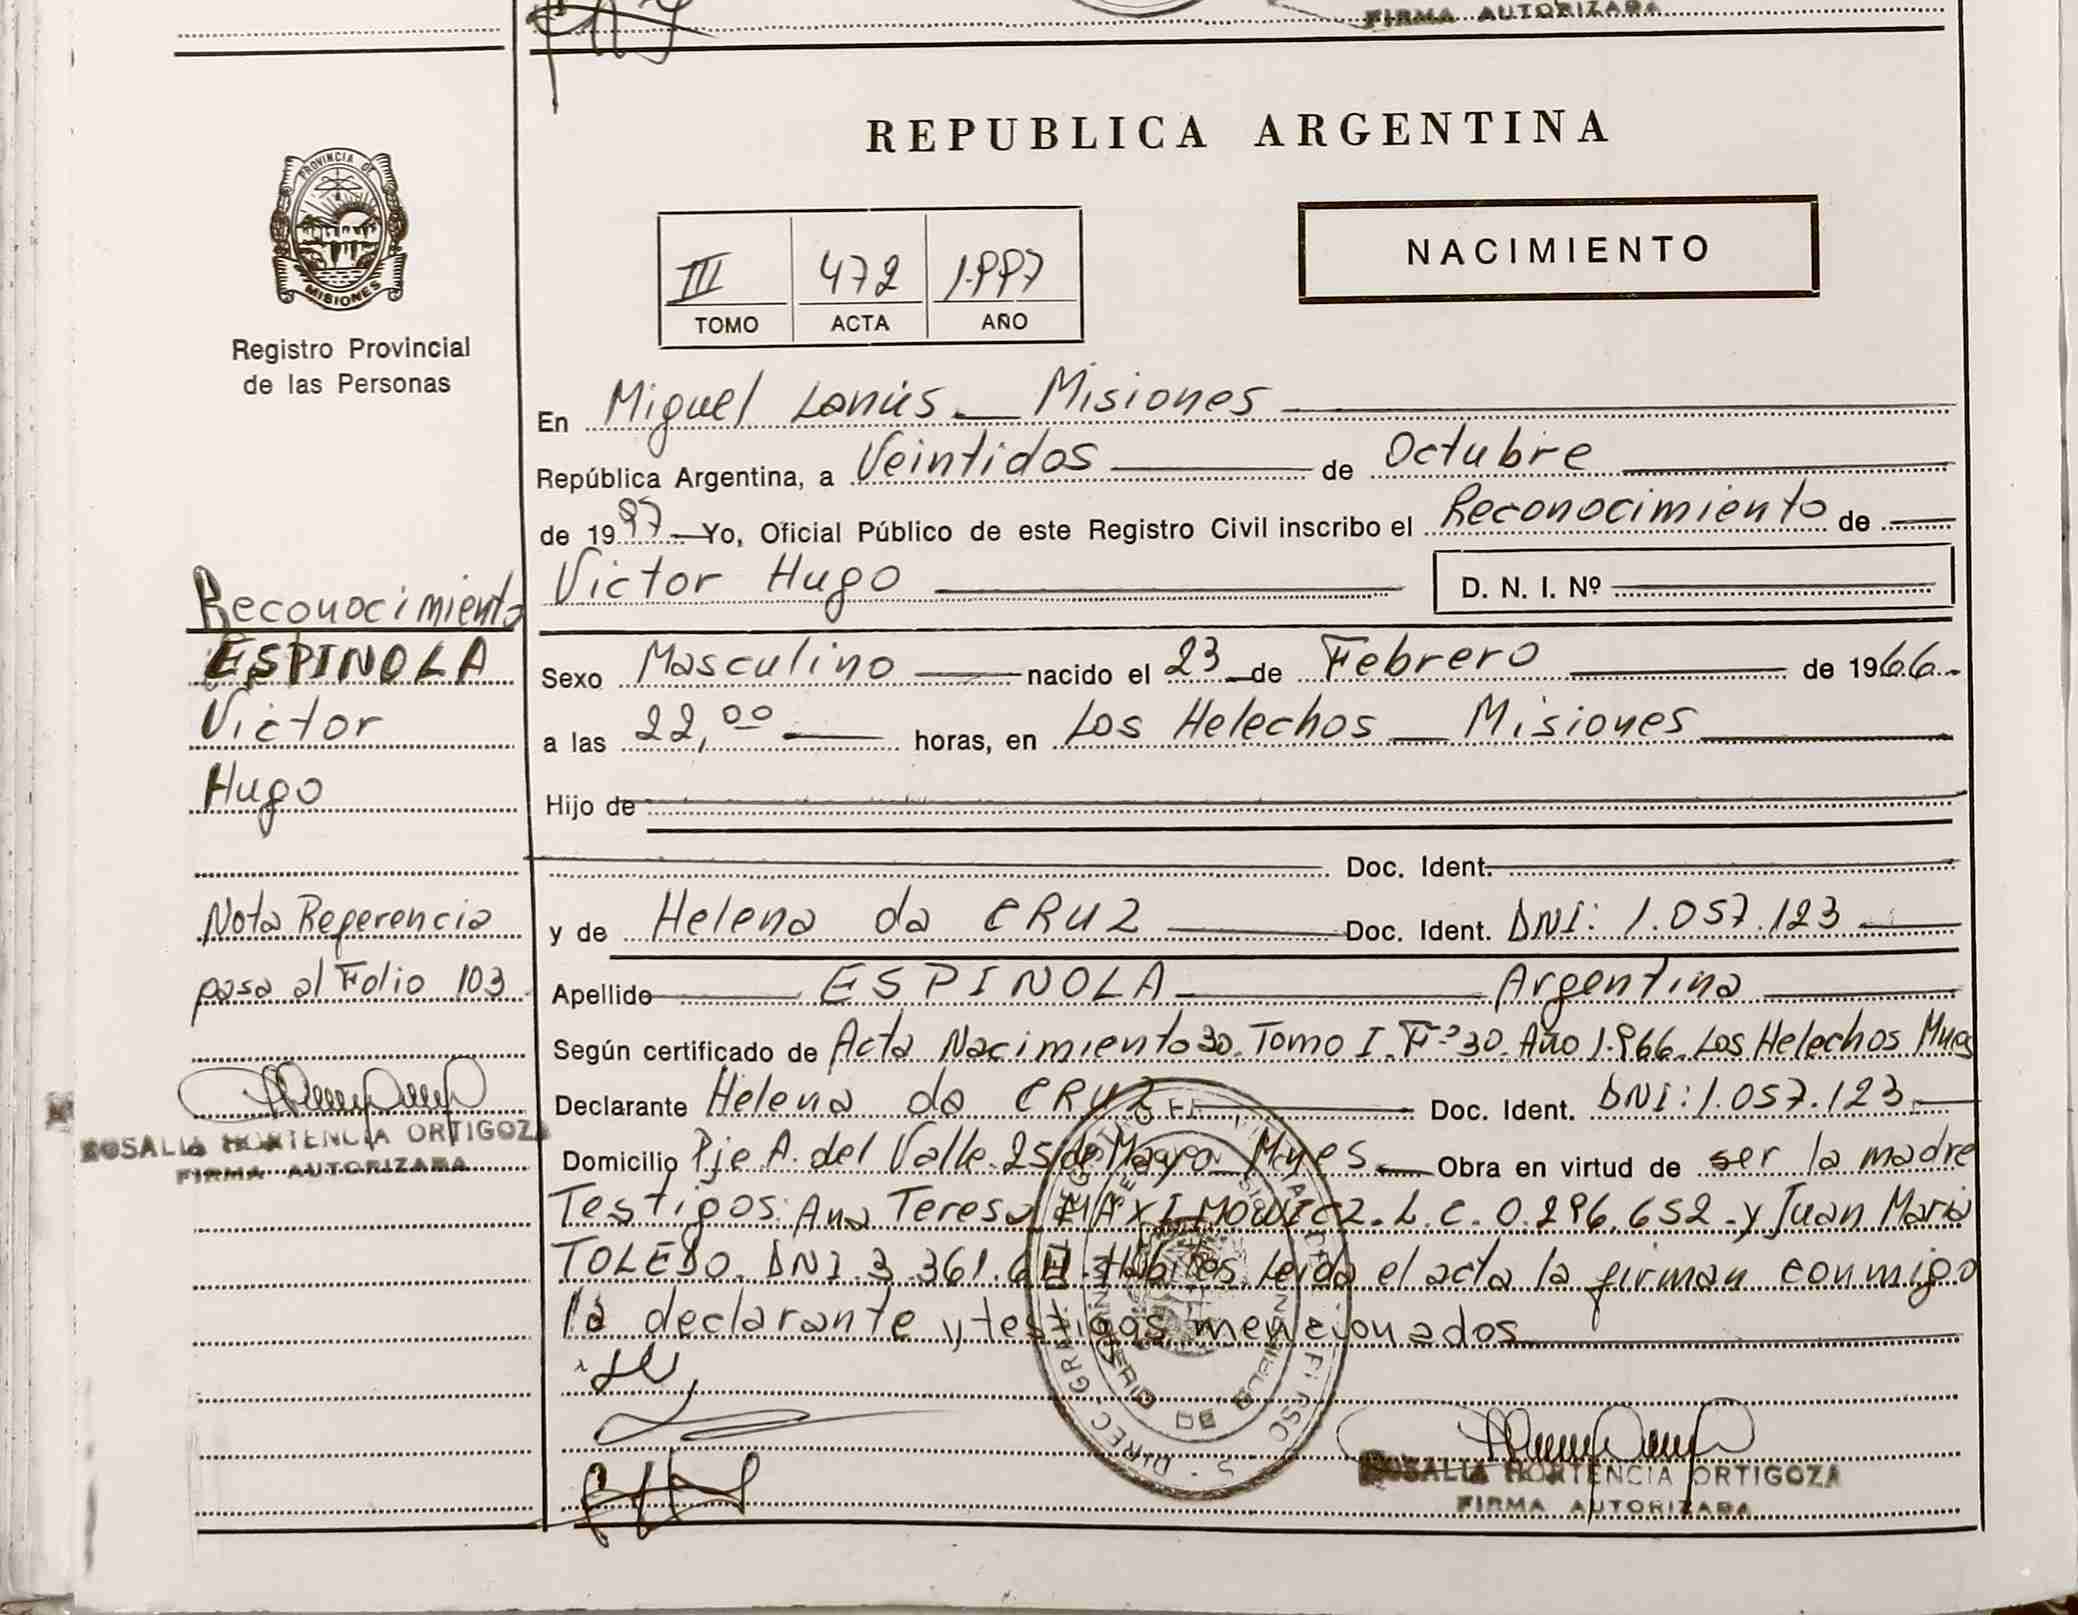 FIRMA AUTORIZADA
REPUBLICA ARGENTINA
PROVINCIA DE
MISIONES
Registro Provincial
de las Personas
III 472 1.997
TOMO ACTA AÑO
NACIMIENTO
En Miguel Lanús - Misiones
República Argentina, a Veintidos de Octubre
de 1997 - Yo, Oficial Público de este Registro Civil inscribo el Reconocimiento de
Victor Hugo D. N. I. Nº
Sexo Masculino nacido el 23 de Febrero de 1966.
a las 22,00 horas, en Los Helechos - Misiones
Hijo de
Doc. Ident.
y de Helena da CRUZ Doc. Ident. DNI: 1.057.123
Apellido ESPINOLA Argentina
Según certificado de Acta Nacimiento 30. Tomo I. Fº 30. Año 1.966. Los Helechos Mnes
Declarante Helena da CRUZ Doc. Ident. DNI: 1.057.123
Domicilio Pje A. del Valle. 25 de Mayo Mnes Obra en virtud de ser la madre
Testigos: Ana Teresa MAXIMOWICZ. L.C. 0.296.652 - y Juan Maria
TOLEDO. DNI. 3.361. Hábiles. Leida el acta la firman conmigo
la declarante y testigos mencionados
Reconocimiento
ESPINOLA
Victor
Hugo
Nota Referencia
pasa al Folio 103
ROSALIA HORTENCIA ORTIGOZA
FIRMA AUTORIZADA
ROSALIA HORTENCIA ORTIGOZA
FIRMA AUTORIZADA